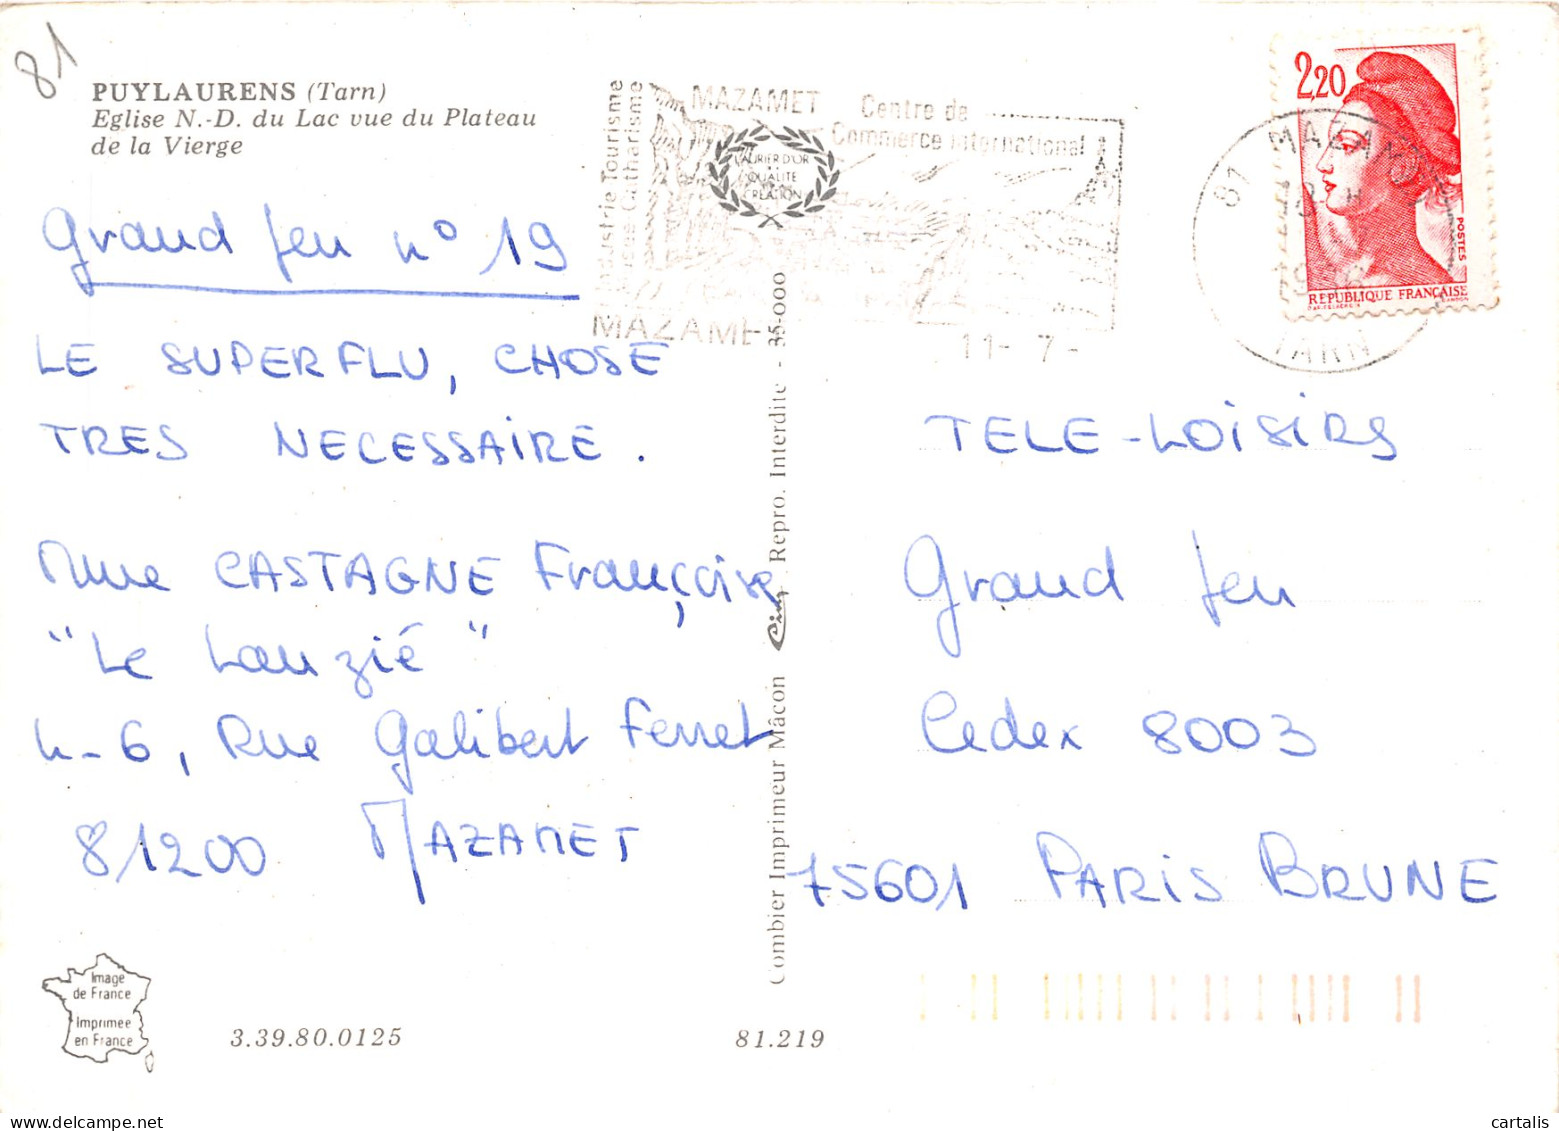 81
PUYLAURENS (Tarn)
Eglise N.-D. du Lac vue du Plateau
de la Vierge
Grand Jeu n° 19
LE SUPERFLU, CHOSE
TRES NECESSAIRE.
Mme CASTAGNE Françoise
"Le Lauzié"
4-6, Rue Galibert Ferret
81200 MAZAMET
Image
de France
Imprimée
en France
3.39.80.0125
81.219
Combier Imprimeur Mâcon Cim Repro. Interdite - 35-000
Industrie Tourisme
Catharisme
MAZAMET Centre de
Commerce International
LAURIER D'OR
QUALITE
CREATION
MAZAME
11- 7-
81 MAZAM
TARN
2,20
POSTES
REPUBLIQUE FRANÇAISE
TELE-LOISIRS
Grand Jeu
Cedex 8003
75601 PARIS BRUNE
cartalis